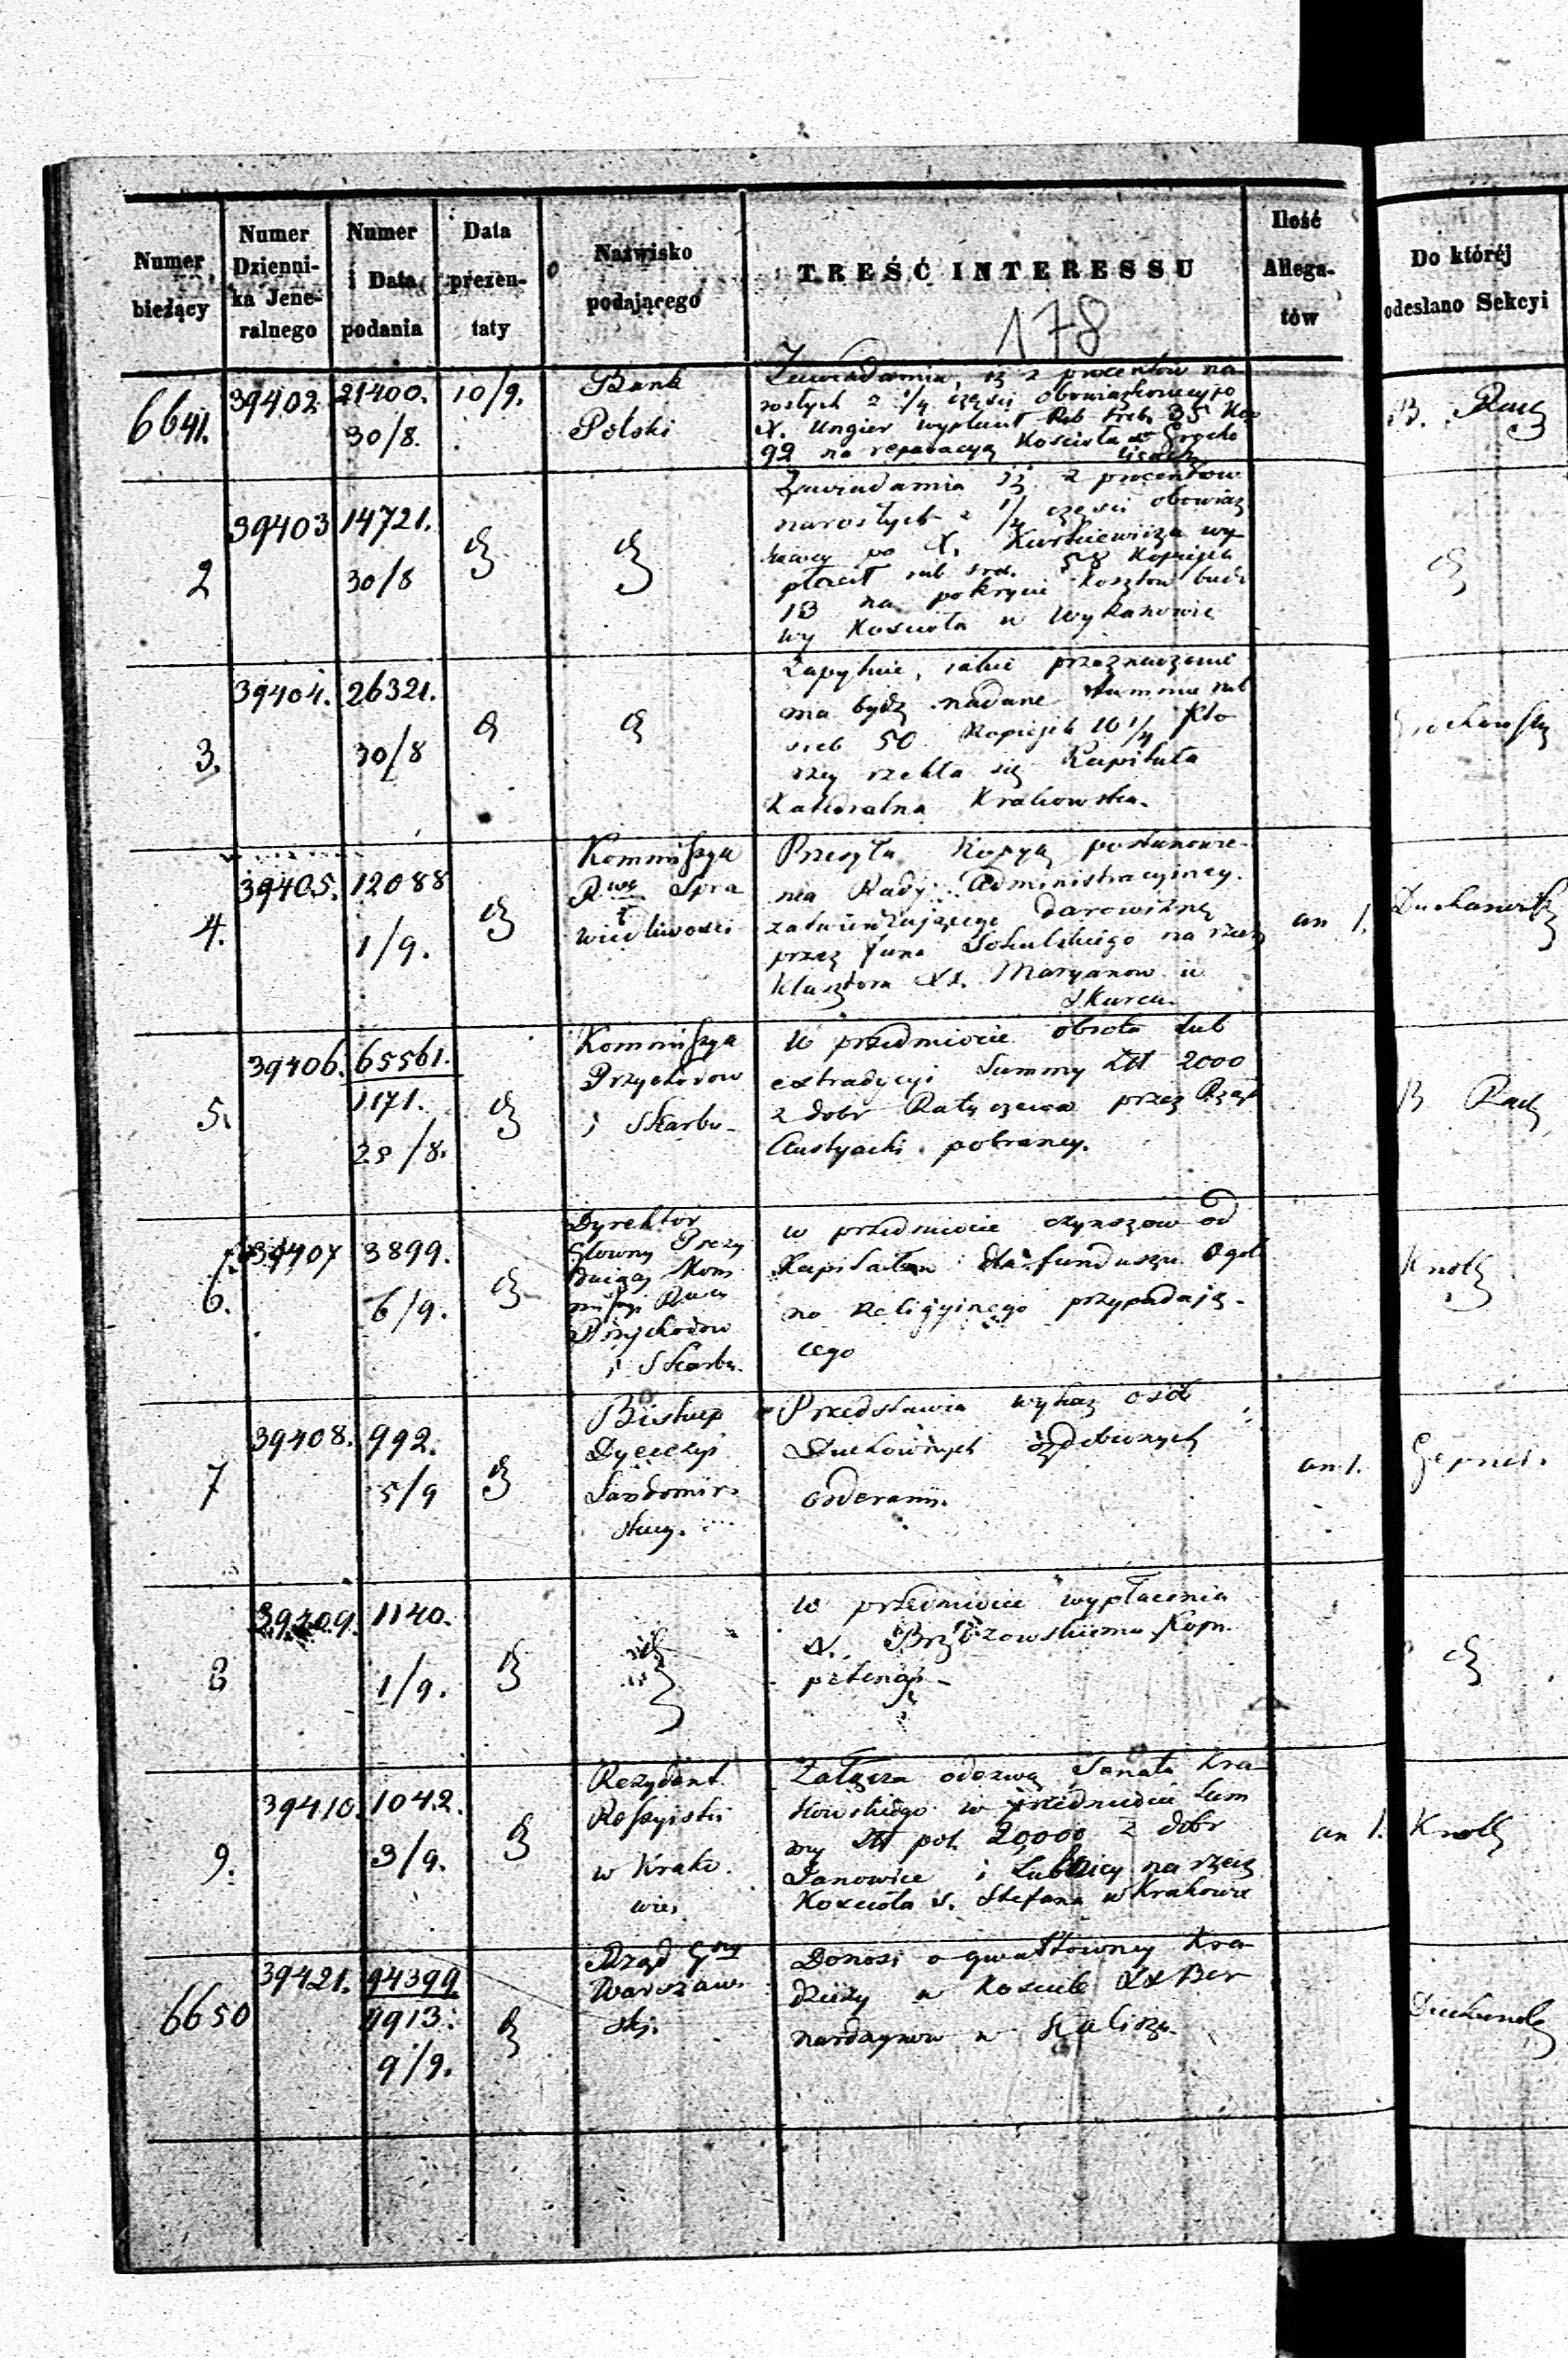 Numer bieżący
Numer Dzienni- ka Jene- ralnego
Numer i Data podania
Data prezen- taty
Nazwisko podającego
TREŚĆ INTERESSU
Ilość Allega- tów
Do któréj odesłano Sekcyi
178
6641.
39402
21400.
30/8.
10/9.
Bank
Polski
Zawiadamia, iż z procentów na
rosłych z 1/4 części obowiązkowey po
X. Ungier wypłacił Rub sreb. 35 Kop
92 na reparacyą Kościoła w Grocho
licach
B.
2
39403
14721.
30/8
Zawiadamia iż z procentow
narosłych z 1/4 części obowiąz
kowey po X. Kurkiewiczu wy
płacił rub sre. 58 Kopiejek
13 na pokrycie Kosztow budo
wy Kościoła w Wykanowie
3.
39404.
26321.
30/8
Zapytuie, iakie przeznaczenie
ma bydź nadane summie rub
sreb 50 Kopiejek 10 1/4 Kto
rey rzekła się Kapituła
Katedralna Krakowska.
4.
39405.
12088
1/9.
Kommissya
Rwa Spra
wiedliwości
Przesyła Kopyą postanowie-
nia Rady Administracyiney
zatwierdzającego darowiznę
przez Jana Sokulskiego na rzecz
klasztoru XX. Maryanow w
Skurcu.
an 1.
5.
39406.
65561.
1171.
28/8.
Kommissya
Przychodow
i Skarbu
W przedmiocie obrotu lub
extradycyi Summy Zł 2000
z dobr Ratyczewa przez Rząd
Austyacki pobraney.
B
6.
39407
3899.
6/9.
Dyrektor
Głowny Prezy
duiący Kom
missyi Rwey
Przychodow
i Skarbu.
w przedmiocie czynszow od
Kapitałow dla funduszu Ogól
no Religijnego przypadają-
cego
Knoll
7
39408.
992.
5/9
Biskup
Dyecezyi
Sandomir
skiey.
Przedstawia wykaz osób
Duchownych ozdobionych
orderami.
an 1.
8
39409.
1140.
1/9.
W przedmiocie wypłacenia
X. Brzozowskiemu Kom
petencyi
9.
39410.
1042.
3/9.
Rezydent
Rossyiski
w Krako
wie.
Załącza odezwę Senatu Kra
kowskiego w przedmiocie Sum
my Zł pol. 20,000 z dobr
Janowice i Lubnicy na rzecz
Kościoła S. Stefana w Krakowie
an 1.
Knoll
6650
39421.
94399
4913.
9/9.
Rząd Gny
Warszaw
ski.
Donosi o gwałtowney Kra
dzieży w Kosciele XX Ber
nardynow w Kaliszu.